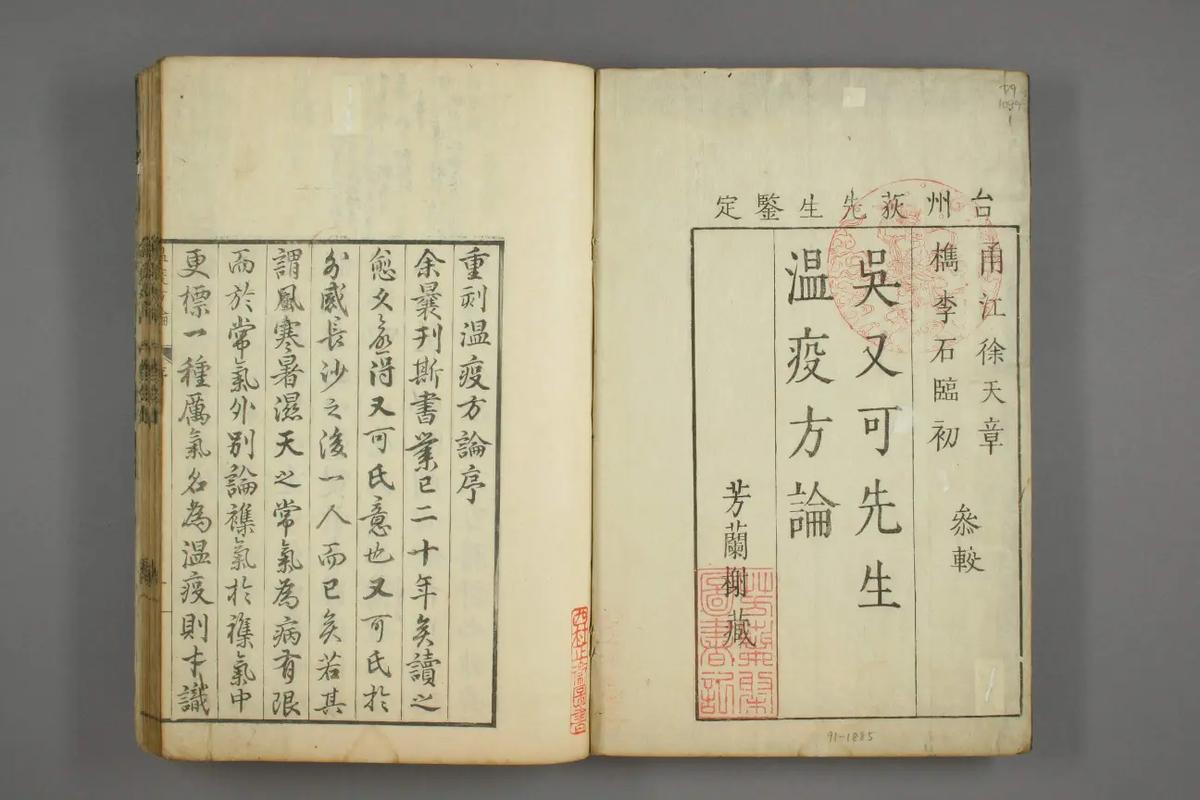 台州荻先生鑒定
甬江徐天章
檇李石臨初
叅較
吳又可先生
温疫方論
芳蘭榭藏
芳蘭榭圖書記
79
1089
1
91-1885
重刻温疫方論序
余曩刊斯書業已二十年矣讀之
愈久愈得又可氏意也又可氏於
外感長沙之後一人而已矣若其
謂風寒暑濕天之常氣為病有限
而於常氣外別論襍氣於襍氣中
更標一種厲氣名為温疫則才識